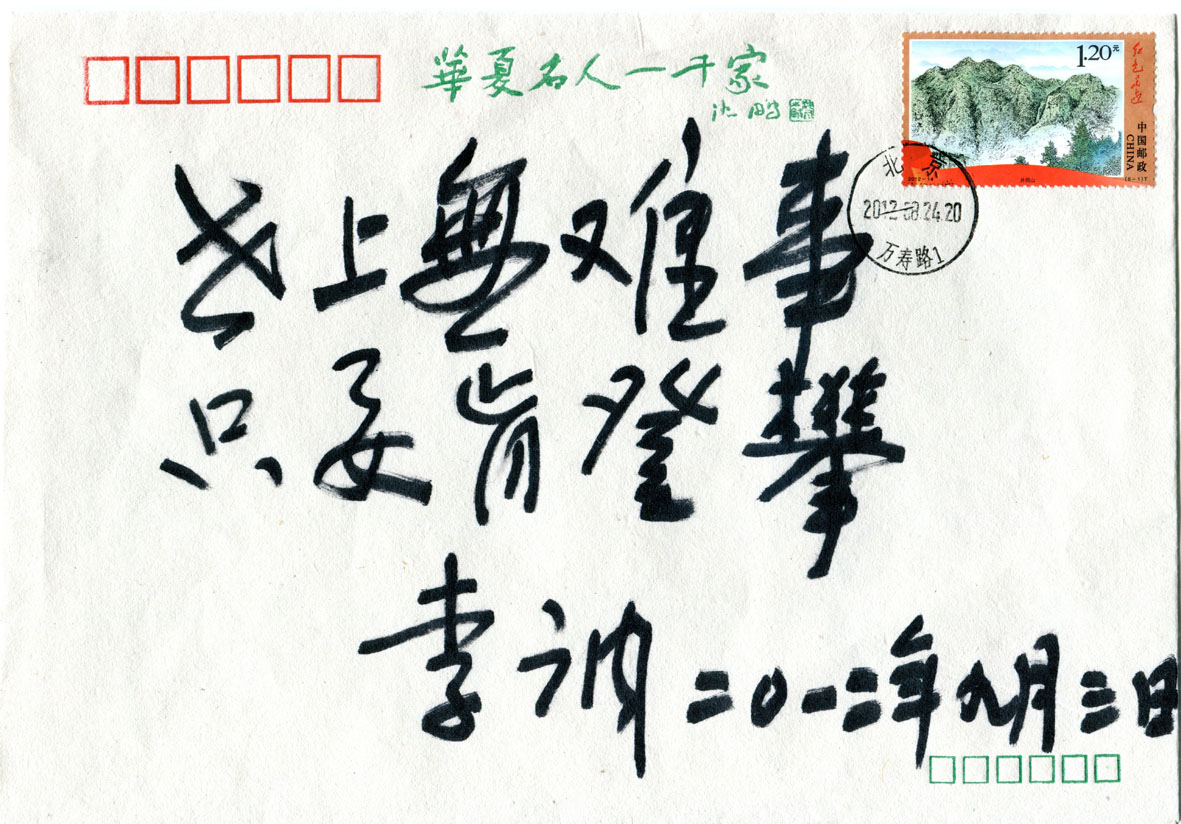 華夏名人一千家
沈鹏
1.20元
红色足迹
中国邮政
CHINA
2012-14
井冈山
(6-1)T
北京
2012·08.24.20
万寿路1
世上無难事
只要肯登攀
李讷 二〇一二年九月三日